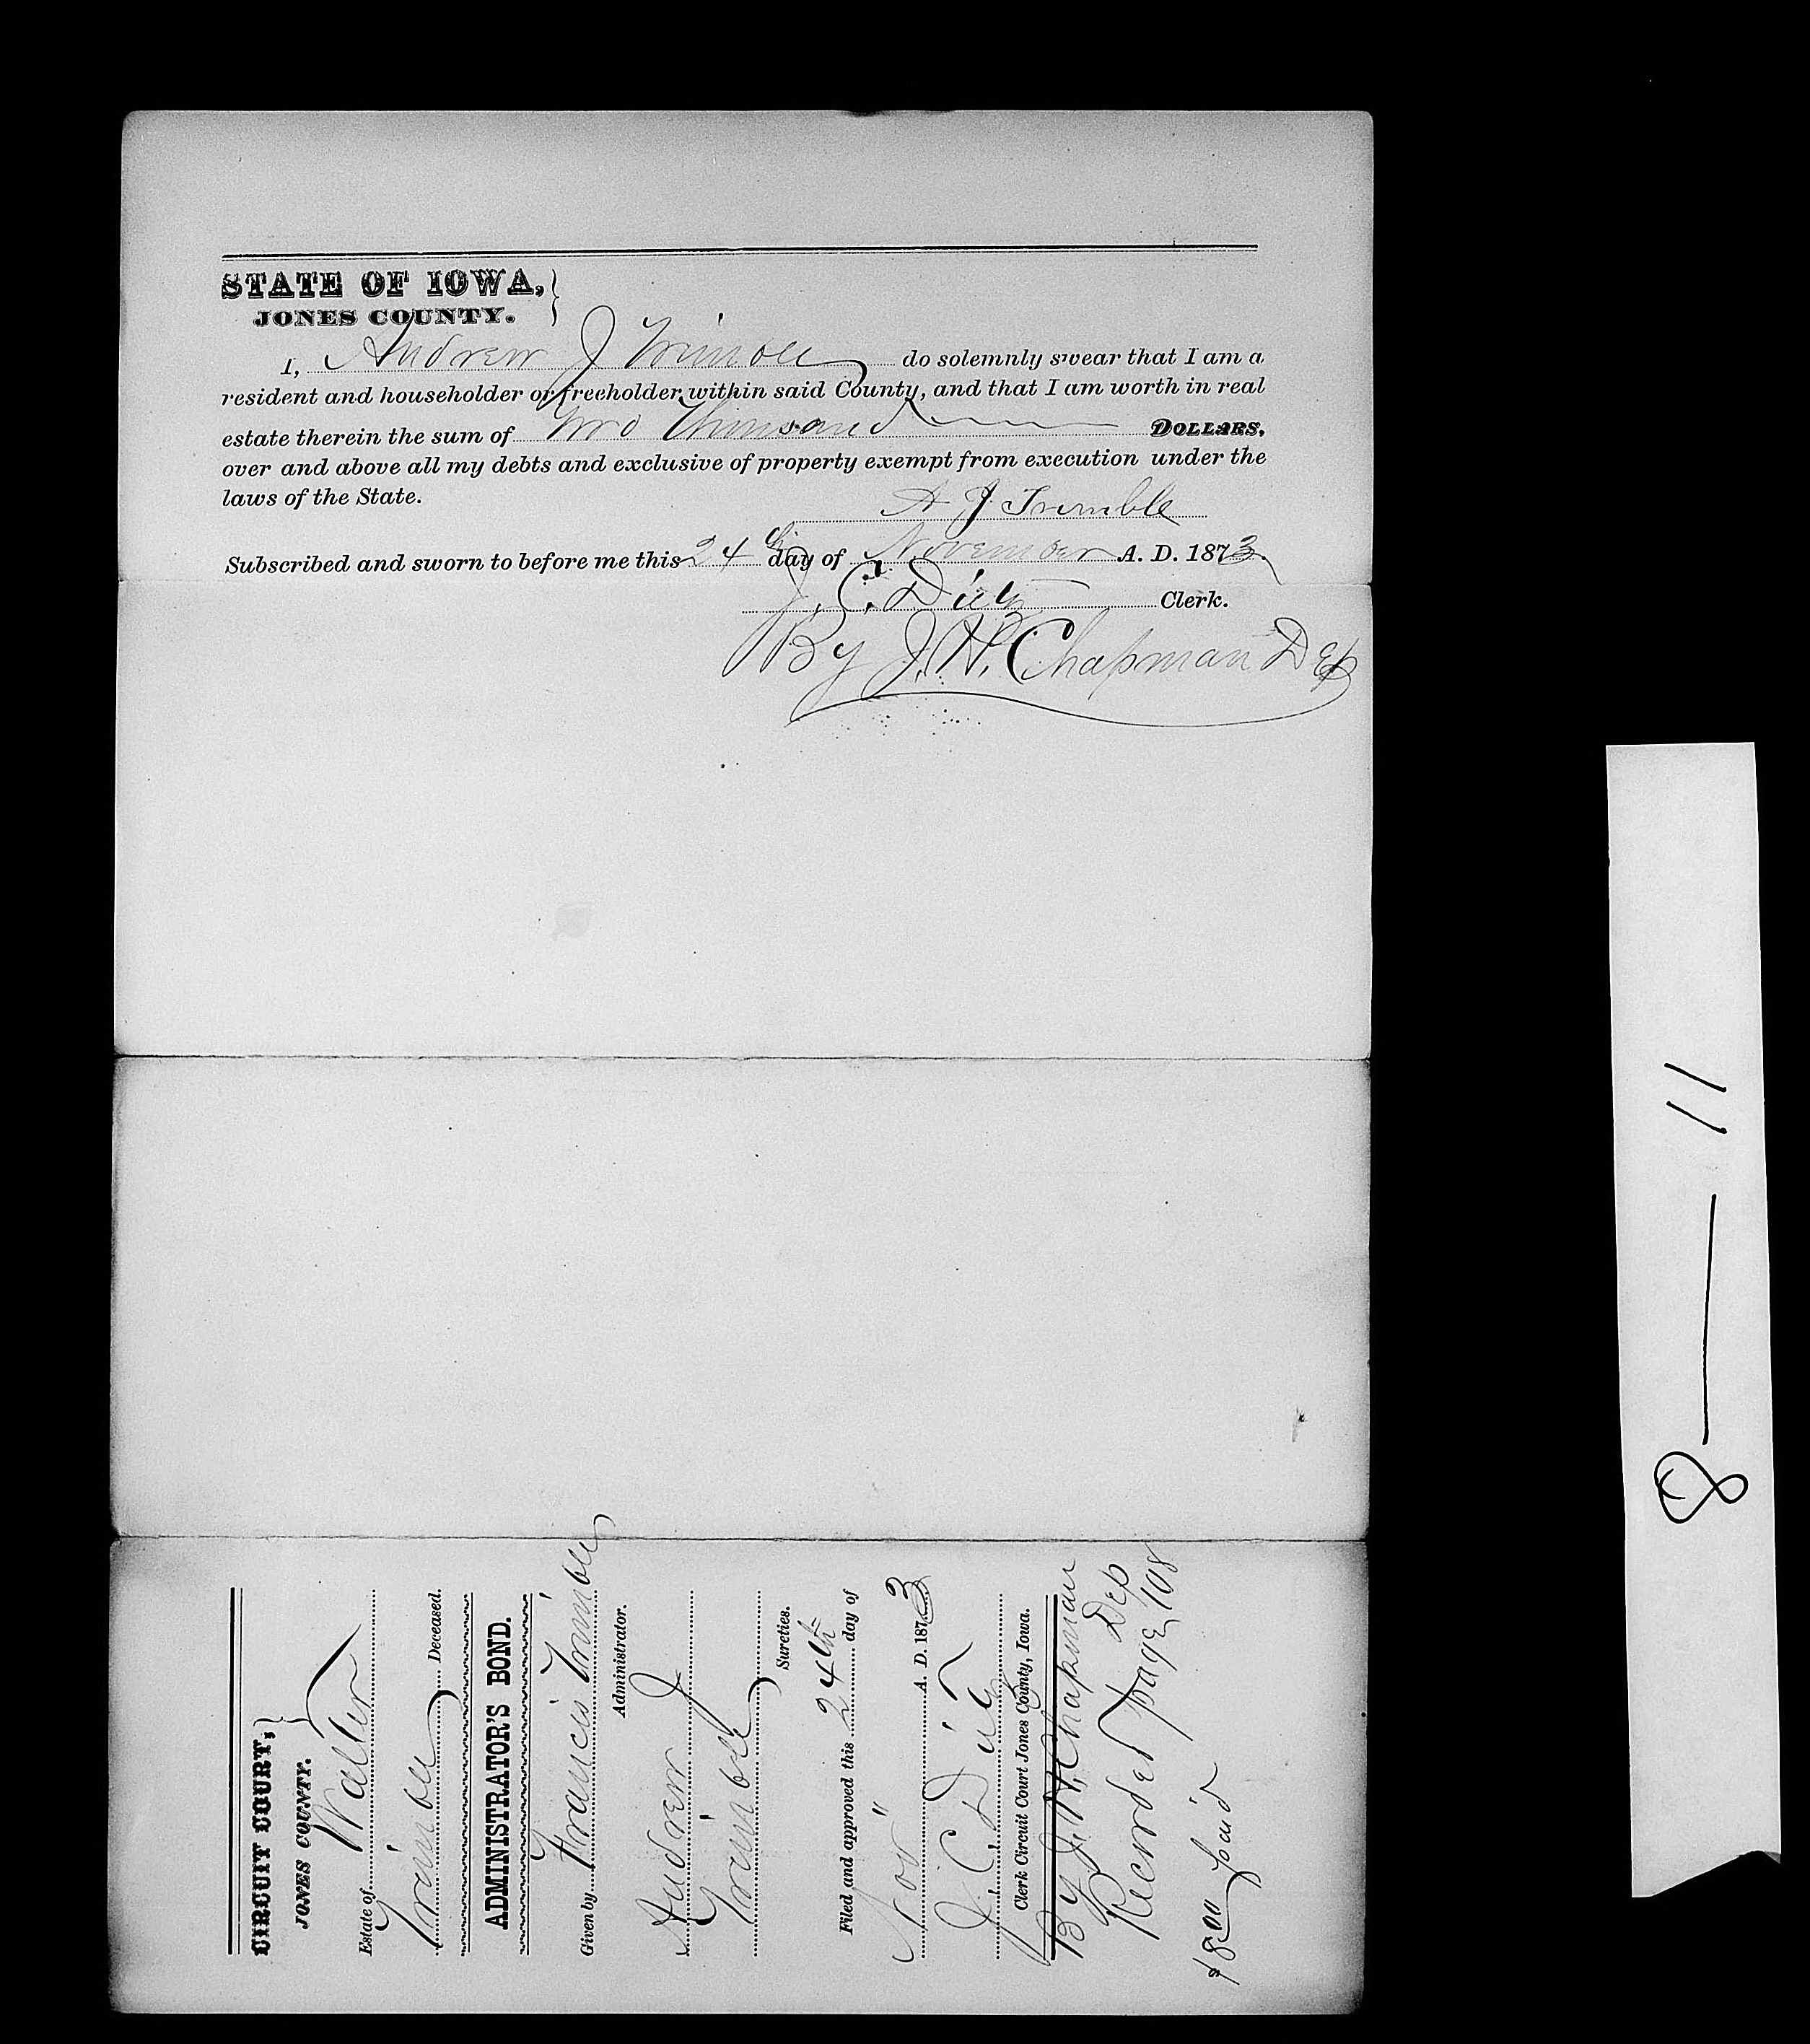 STATE OF IOWA,
JONES COUNTY.
I, Andrew J Trimble do solemnly swear that I am a
resident and householder or freeholder within said County, and that I am worth in real
estate therein the sum of Two Thousand DOLLARS,
over and above all my debts and exclusive of property exempt from execution under the
laws of the State.
A J Trimble
Subscribed and sworn to before me this 24th day of November A. D. 1873
J. C. Dietz Clerk.
By J. H. Chapman Dep
CIRCUIT COURT,
JONES COUNTY.
Estate of Walter
Trimble Deceased.
ADMINISTRATOR'S BOND.
Given by Francis Trimble
Administrator.
Andrew J
Trimble
Sureties.
Filed and approved this 24th day of
Nov" A. D. 1873
J. C. Dietz
Clerk Circuit Court Jones County, Iowa.
By J. H. Chapman
Dep
Recorded page 108
$8.00 paid
8 — 11